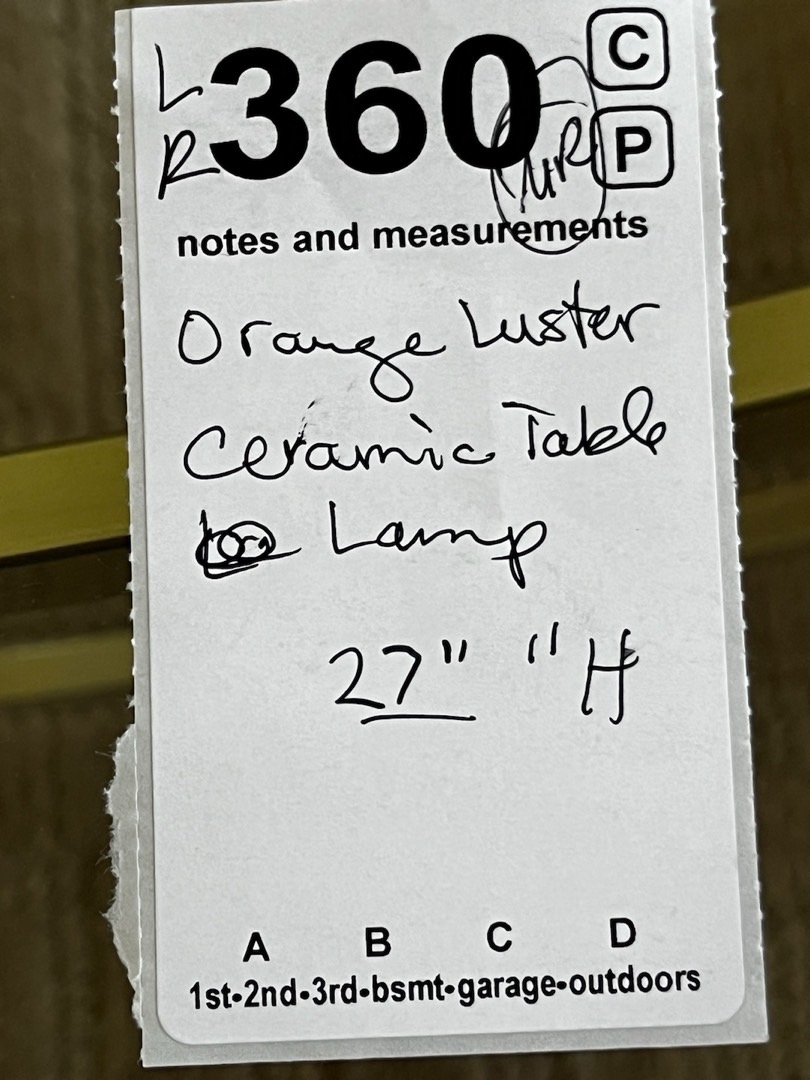 L 360 C
R P
notes and measurements
Orange Luster
Ceramic Table
Lamp
27" "H
A B C D
1st•2nd•3rd•bsmt•garage•outdoors